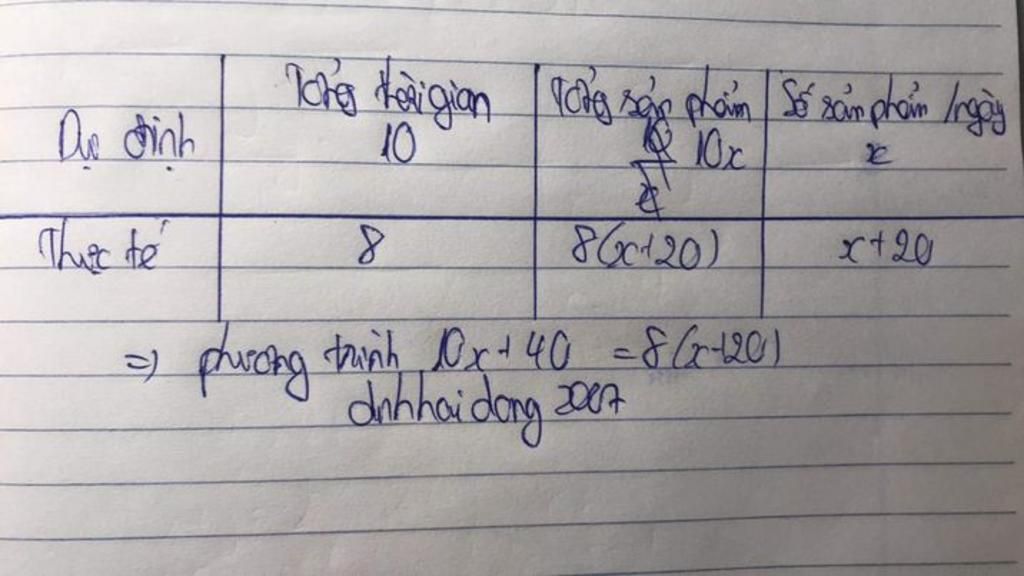 Tổng thời gian Tổng sản phẩm Số sản phẩm /ngày
Dự định 10 10x x
Thực tế 8 8(x+20) x+20
=> phương trình 10x+40 = 8(x+20)
dnhhaidang2007